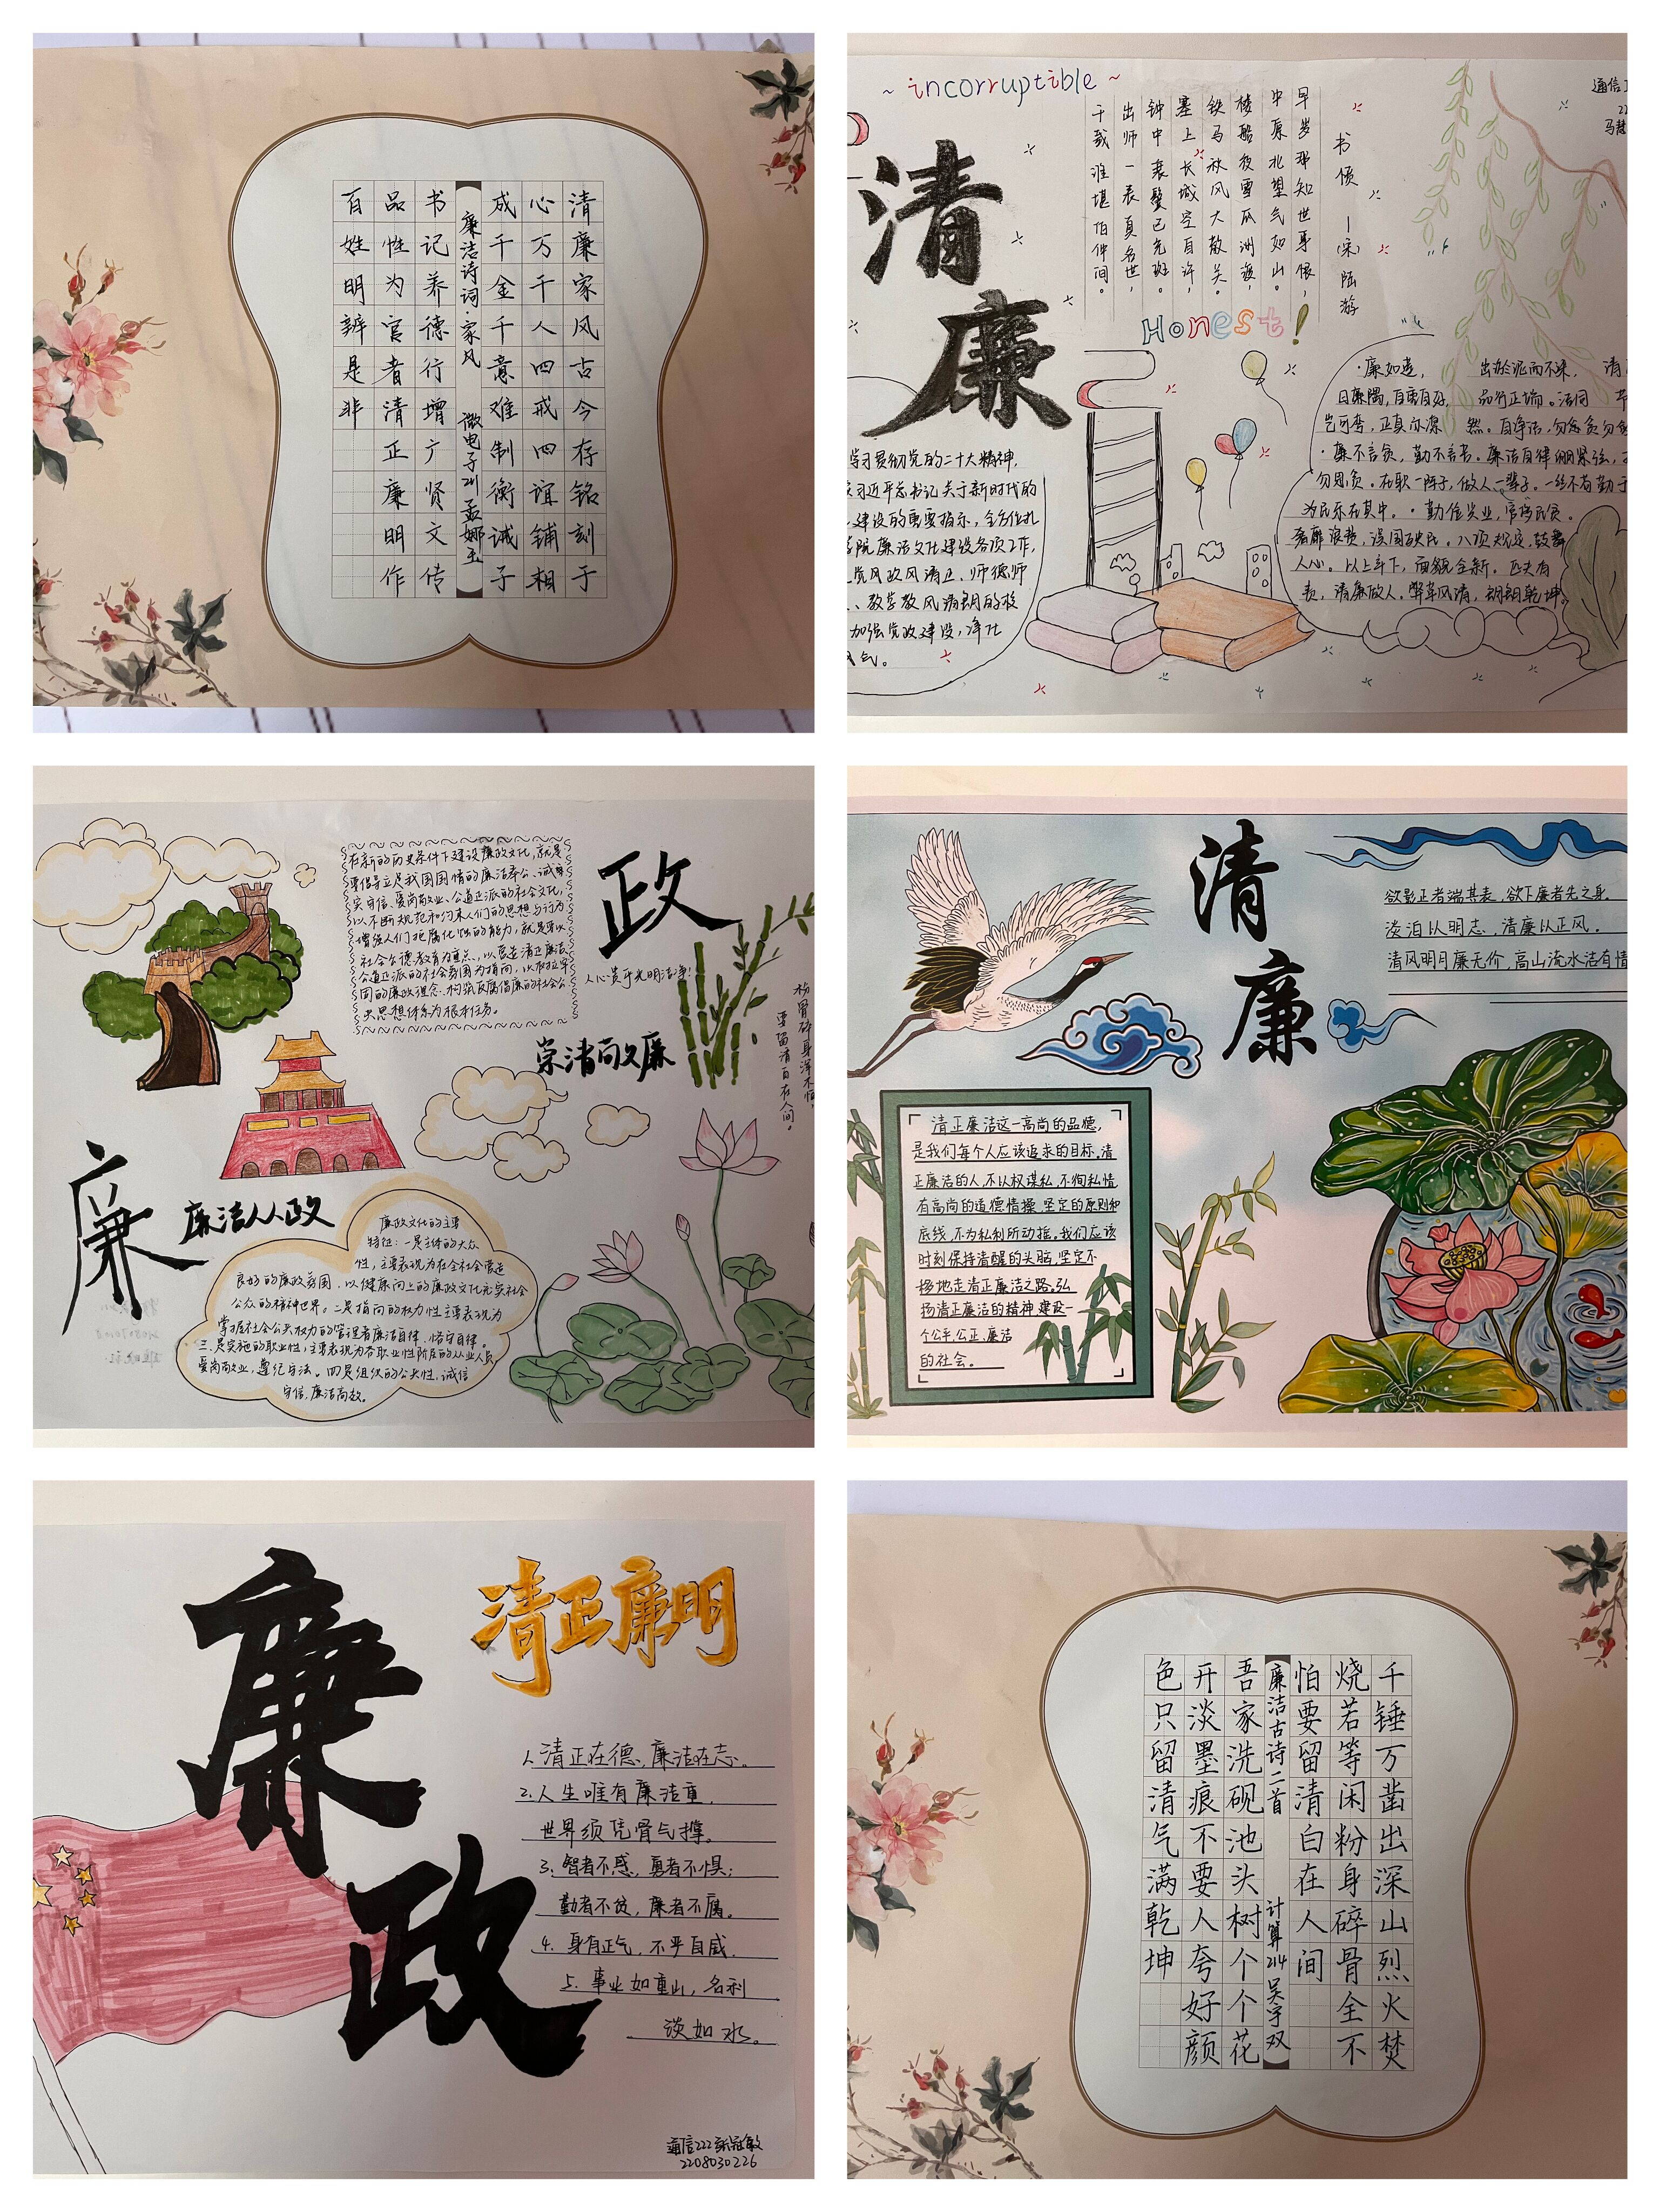 清廉家风古今存铭刻于
心万千人四戒四谊铺相
成千金千意难制衡诚子
廉洁诗词·家风 微电子211 孟娜玉
书记养德行增广贤文传
品性为官者清正廉明作
百姓明辨是非
~ incorruptible ~
清廉
通信工
书愤
—(宋)陆游
早岁那知世事艰,
中原北望气如山。
楼船夜雪瓜洲渡,
铁马秋风大散关。
塞上长城空自许,
钟中衰鬓已先斑。
出师一表真名世,
千载谁堪伯仲间。
Honest!
学习贯彻党的二十大精神,
习近平总书记关于新时代的
建设的重要指示,全方位扎
学院廉洁文化建设各项工作,
党风政风清正、师德师
、教学教风清朗的校
加强党政建设,净化
风气。
·廉如莲, 出淤泥而不染, 清
曰廉隅,自重自好, 品行正端。洁同
岂可夸,正真亦凛 然。自净洁,勿忘贪勿
·廉不言贫,勤不言苦。廉洁自律绷紧弦,
勿思贪。在职一阵子,做人一辈子。一丝不苟勤于
为民乐在其中。·勤俭兴业,
奢靡浪费,误国殃民。八项规定,鼓舞
人心。以上率下,面貌全新。匹夫有
责,清廉做人。弊革风清,朗朗乾坤。
在新的历史条件下建设廉政文化,就是
要倡导立足我国国情的廉洁奉公、诚实
实守信、爱岗敬业、公道正派的社会文化,
以不断规范和约束人们的思想与行为
增强人们拒腐化蚀的能力,就是要以
社会公德教育为重点,以营造清正廉洁
公道正派的社会氛围为指向,以
同的廉政理念、构筑反腐倡廉的社会公
众思想体系为根本任务。
政
人心贵乎光明洁净!
粉骨碎身浑不怕,
要留清白在人间。
崇清尚廉
廉
廉洁人人政
廉政文化的主要
特征:一是主体的大众
性,主要表现为在全社会营造
良好的廉政氛围,以健康向上的廉政文化充实社会
公众的精神世界。二是指向的权力性主要表现为
掌握社会公共权力的管理者廉洁自律、恪守自律。
三、是实施的职业性,主要表现为各职业性阶层的从业人员
爱岗敬业,遵纪守法。四是组织的公共性,诚信
守信、廉洁高效。
清廉
欲影正者端其表,欲下廉者先之身.
淡泊以明志,清廉以正风.
清风明月廉无价,高山流水洁有情
清正廉洁这一高尚的品德,
是我们每个人应该追求的目标.清
正廉洁的人,不以权谋私,不徇私情
有高尚的道德情操.坚定的原则和
底线,不为私利所动摇.我们应该
时刻保持清醒的头脑,坚定不
移地走清正廉洁之路,弘
扬清正廉洁的精神,建设一
个公平,公正、廉洁
的社会.
廉政
清正廉明
1.清正在德,廉洁在志。
2.人生唯有廉洁重,
世界须凭骨气撑。
3.智者不惑,勇者不惧;
勤者不贫,廉者不腐。
4.身有正气,不平自威.
5.事业如重山,名利
淡如水。
通信222
2208030226
千锤万凿出深山烈火焚
烧若等闲粉身碎骨全不
怕要留清白在人间
廉洁古诗二首 计算214 吴宇双
吾家洗砚池头树个个花
开淡墨痕不要人夸好颜
色只留清气满乾坤